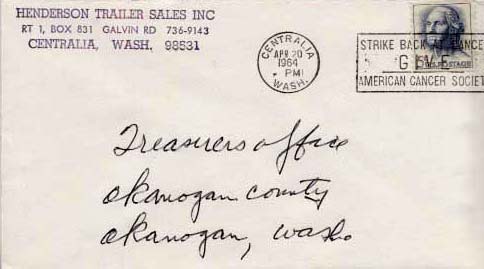 HENDERSON TRAILER SALES INC
RT 1, BOX 831 GALVIN RD 736-9143
CENTRALIA, WASH. 98531
CENTRALIA
APR 20
1964
PM
WASH.
STRIKE BACK AT CANCE
GIVE
AMERICAN CANCER SOCIET
U.S. POSTAGE
Treasurers office
Okanogan County
Okanogan, Wash